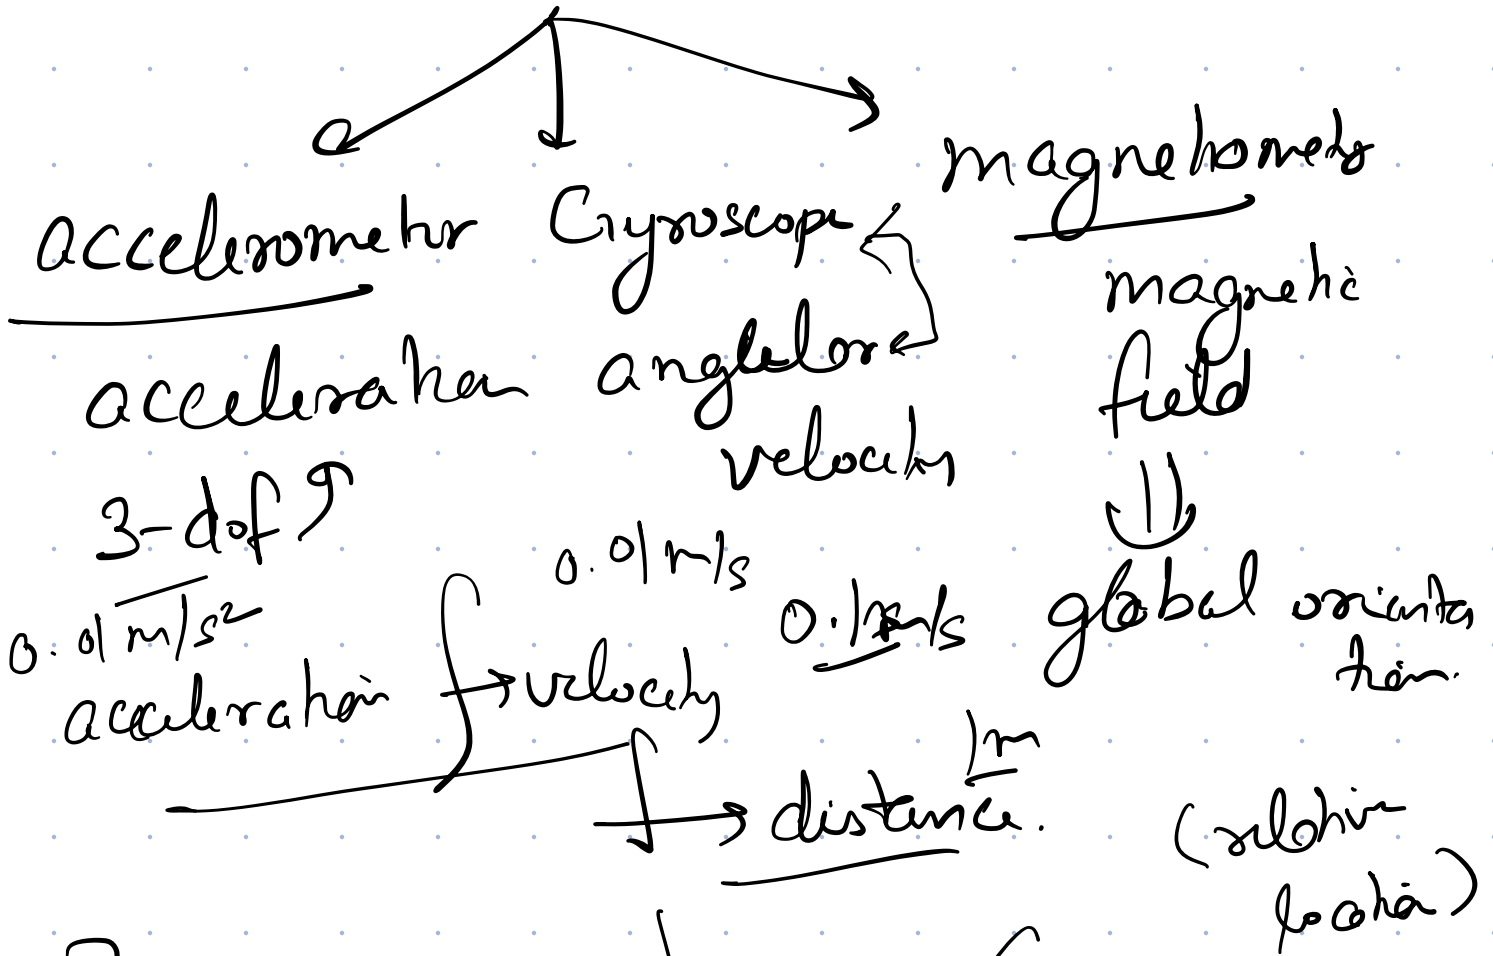 accelerometer Gyroscope magnetometer
acceleration angular velocity magnetic field
3-dof
0.01 m/s²
0.01 m/s
0.1 m/s
global orientation.
acceleration ∫ → velocity
1m
∫ → distance.
(relative location)